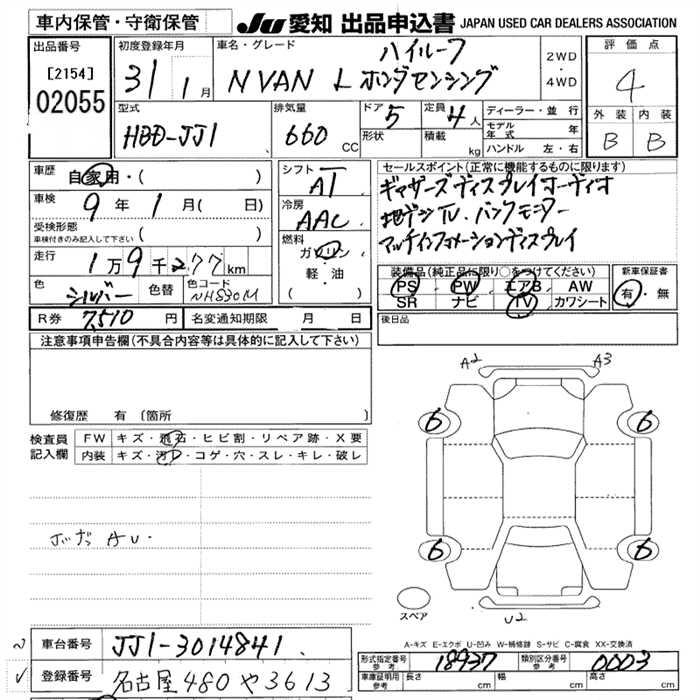 車内保管・守衛保管 JU 愛知 出品申込書 JAPAN USED CAR DEALERS ASSOCIATION
出品番号 初度登録年月 車名・グレード ハイルーフ 2WD・4WD 評価点
[2154] 31 1月 N VAN L ホンダセンシング 4
02055 型式 排気量 ドア 5 定員 4人 ディーラー・並行 外装 内装
HBD-JJ1 660 CC 形状 積載 kg モデル年式 年 B B
ハンドル 左・右
車歴 自家用・( ) シフト AT セールスポイント(正常に機能するものに限ります)
車検 9年 1月( 日) 冷房 AAC ギャザーズディスプレイオーディオ
受検形態 車検付きのみ記入して下さい ( ) 燃料 ガソリン 地デジTV、バックモニター
走行 1万9千277km 軽・油 マルチインフォメーションディスプレイ
( ) 装備品(純正品に限り○をつけてください) 新車保証書
色 シルバー 色替 色コード NH830M PS PW エアB AW 有・無
SR ナビ TV カワシート
R券 7,510円 名変通知期限 月 日 後日品
注意事項申告欄(不具合内容等は具体的に記入して下さい)
A2 A3
修復歴 有 (箇所 )
6 6
検査員記入欄 FW キズ・飛石・ヒビ割・リペア跡・X要
内装 キズ・汚レ・コゲ・穴・スレ・キレ・破レ
AU
6 6
スペア U2
A-キズ E-エクボ U-凹み W-補修跡 S-サビ C-腐食 XX-交換済
車台番号 JJ1-3014841 形式指定番号 参考 18937 類別区分番号 参考 0003
登録番号 名古屋480や3613 車庫証明用 参考 長さ cm 幅 cm 高さ cm